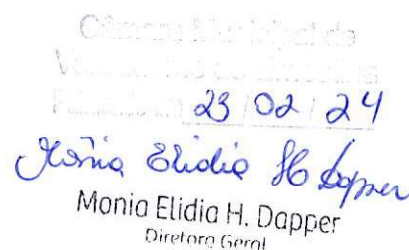 Câmara Municipal de
23 / 02 / 24
Mônia Elidia H Dapper
Monia Elidia H. Dapper
Diretora Geral